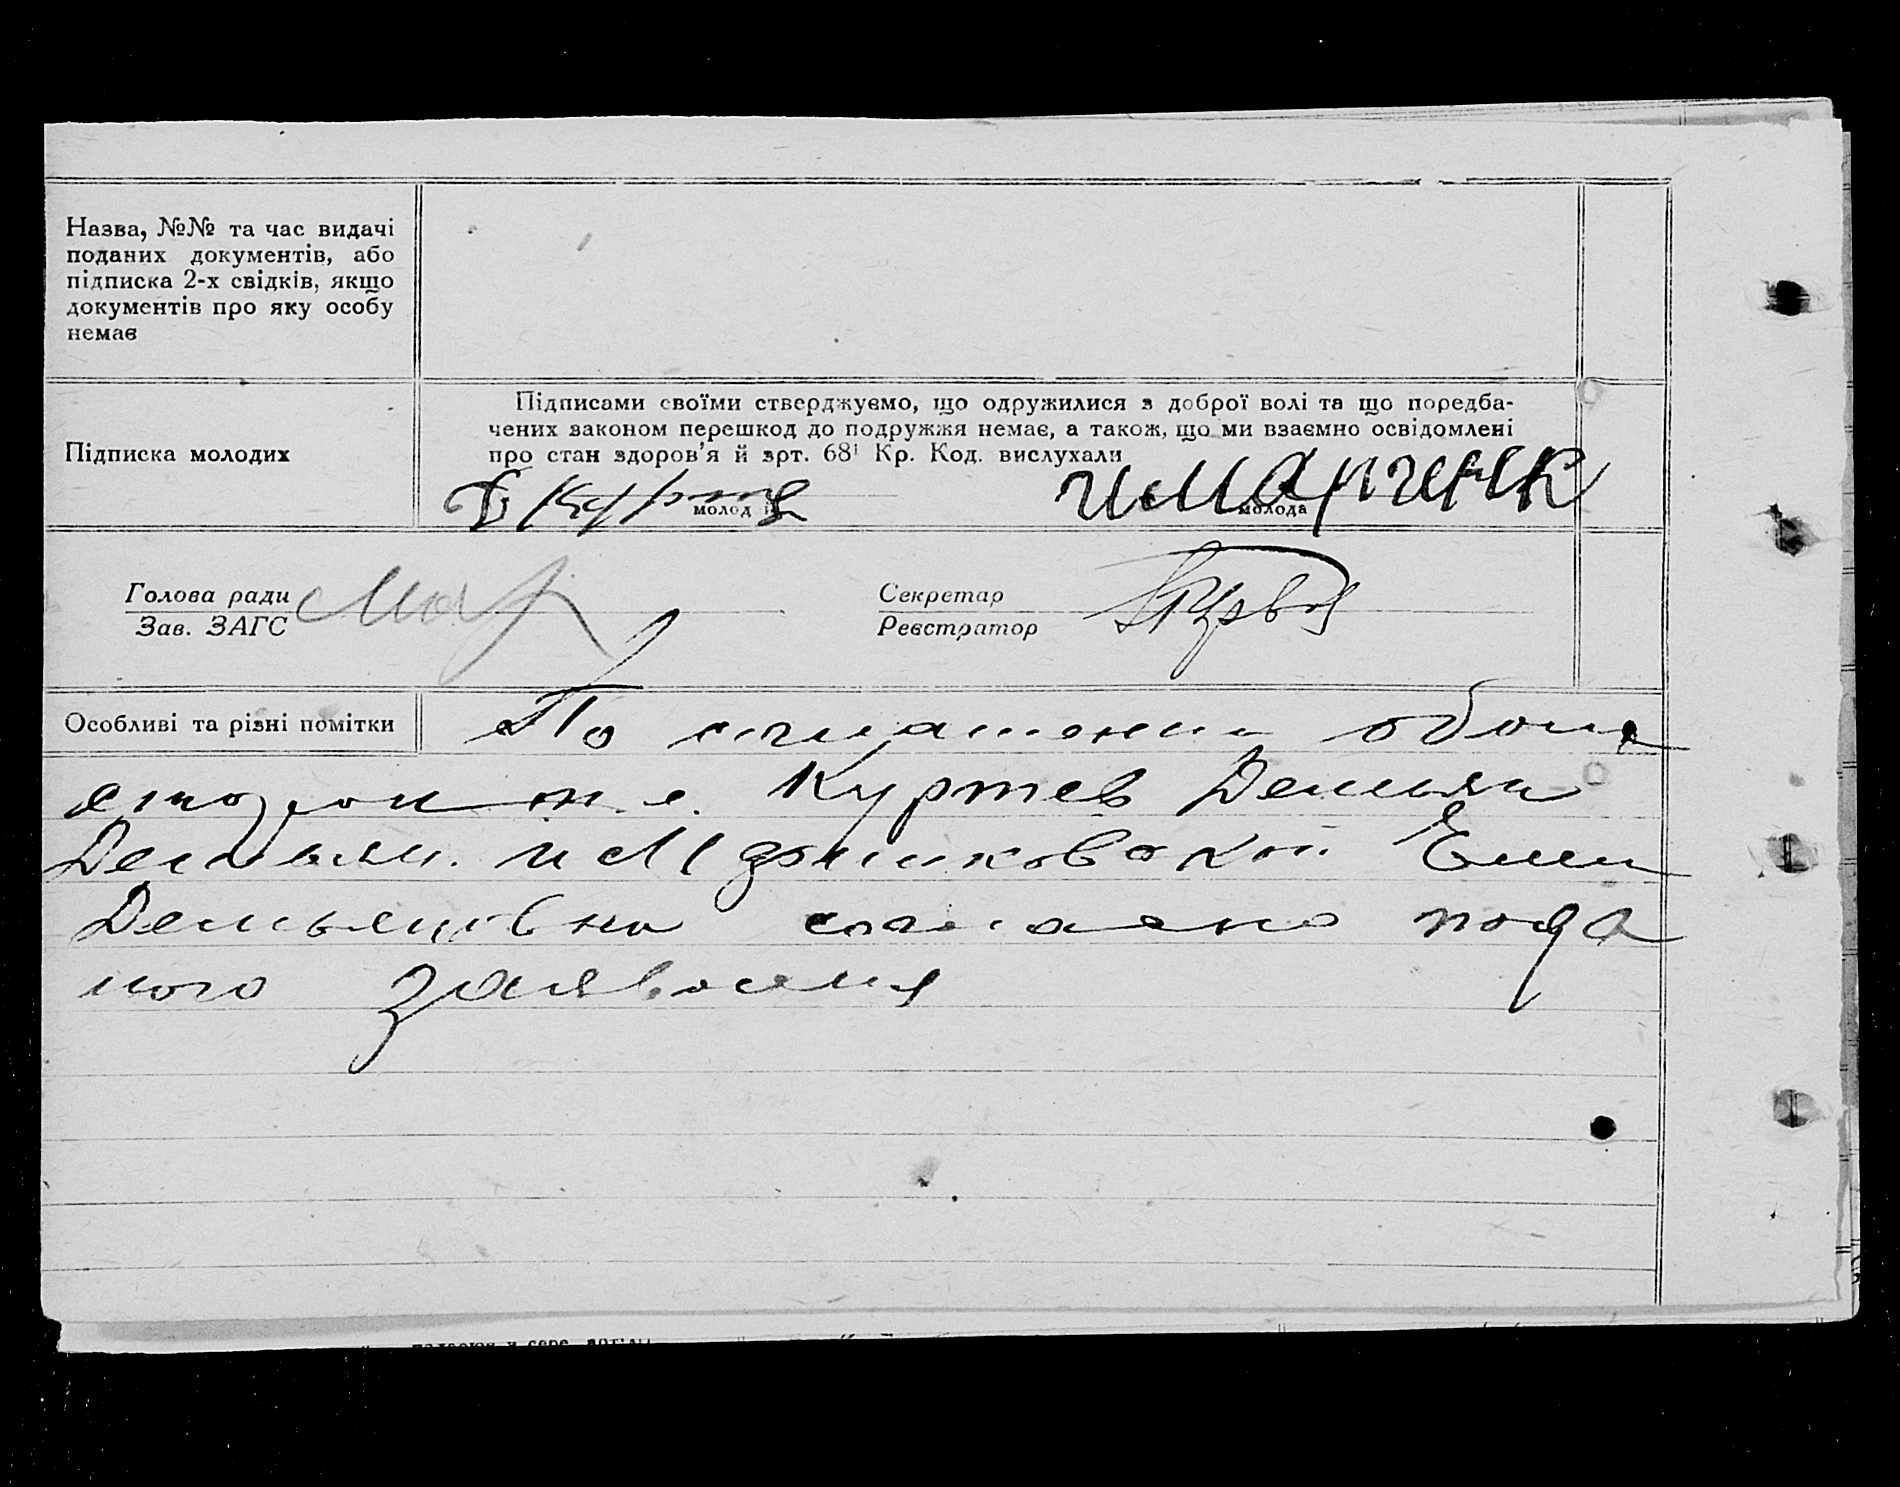 Назва, №№ та час видачі
поданих документів, або
підписка 2-х свідків, якщо
документів про яку особу
немає
Підписка молодих
Підписами своїми стверджуємо, що одружилися з доброї волі та що поредба-
чених законом перешкод до подружжя немає, а також, що ми взаємно освідомлені
про стан здоров'я й арт. 68¹ Кр. Код. вислухали
молод
молода
Голова ради
Зав. ЗАГС
Секретар
Реєстратор
Особливі та різні помітки
По соглашении обоих
сторон т. е. Куртев Демьян
Демьян. и Ели
Демьяновна согласно пода
ного заявления